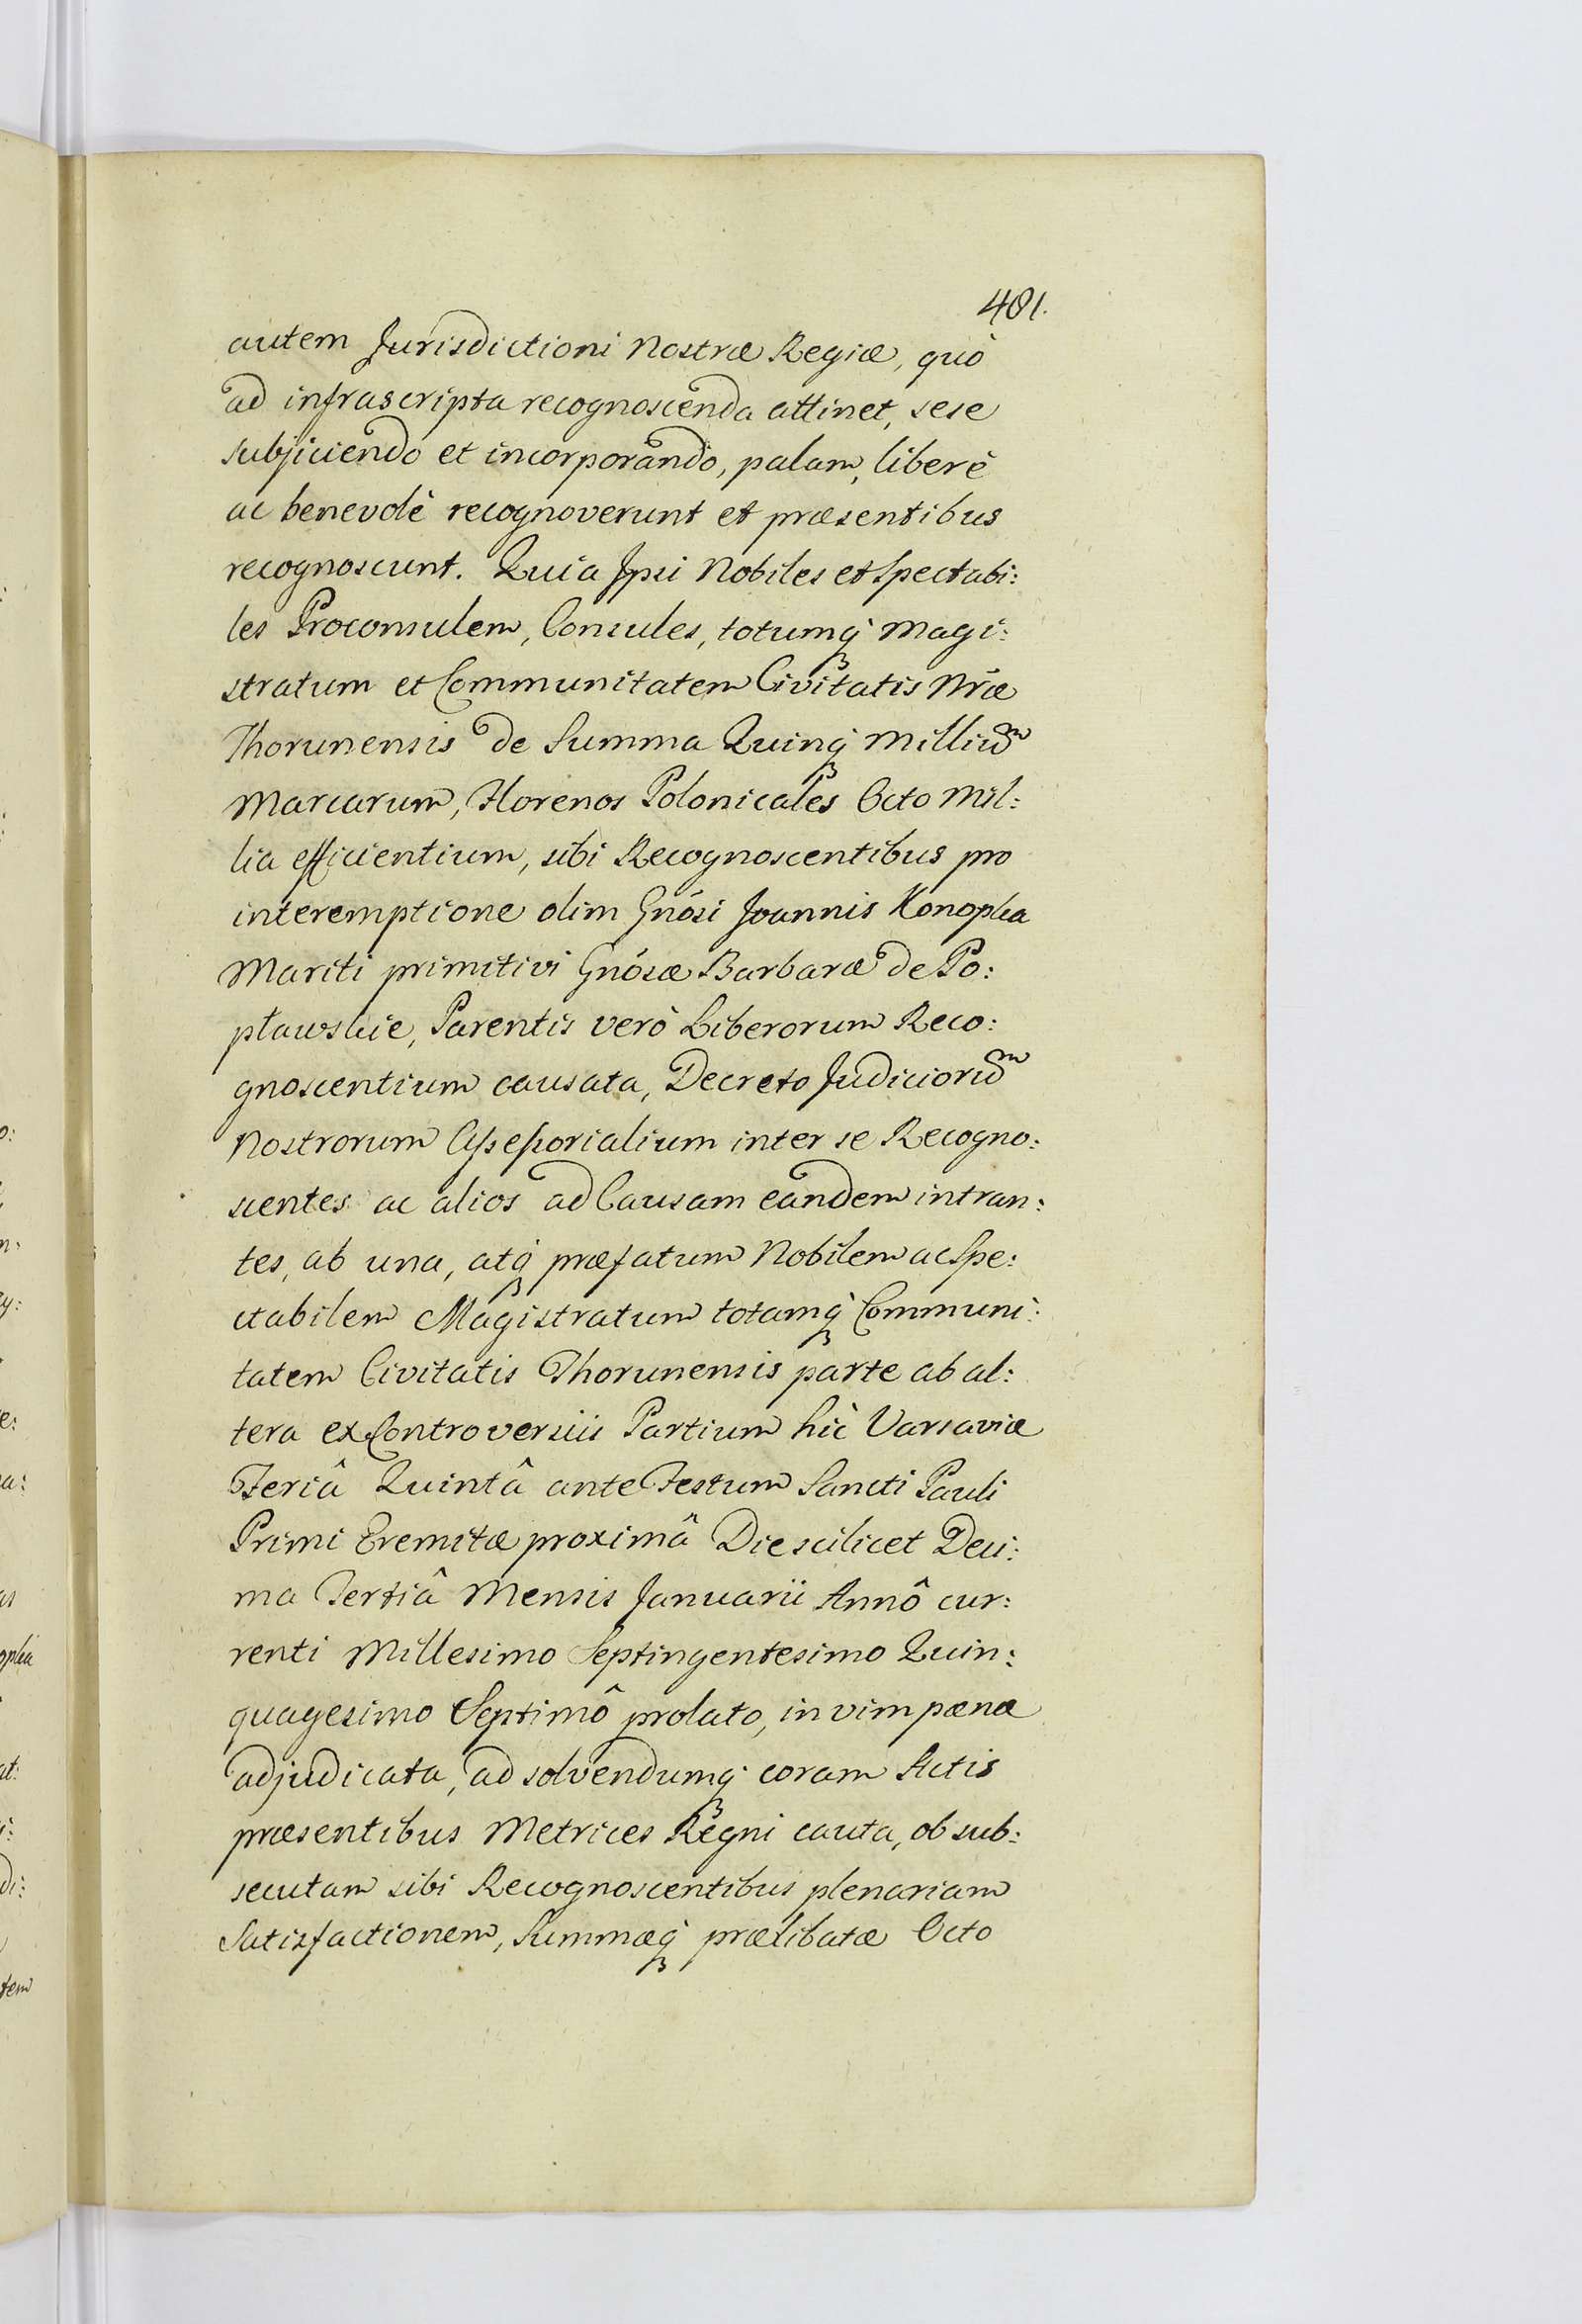 481.
autem Jurisdictioni Nostræ Regiæ, quò
ad infrascripta recognoscenda attinet, sese
subjiciendo et incorporando, palam, liberè
ac benevolè recognoverunt et præsentibus
recognoscunt. Quia Ipsi Nobiles et Spectabi:
les Proconsulem, Consules, totumq́ꝫ Magi:
stratum et Communitatem Civitatis Nr̃æ
Thorunensis de Summa Quinq́ꝫ Milliũm
Marcarum, Florenos Polonicales Octo Mil:
lia efficientium, sibi Recognoscentibus pro
interemptione olim Gnósi Joannis Konopka
Mariti primitivi Gnósæ Barbaræ de Po:
pławskie, Parentis verò Liberorum Reco:
gnoscentium causata, Decreto Judiciorũm
Nostrorum Assessorialium inter se Recogno:
scentes ac alios ad Causam eandem intran:
tes, ab una, atq́ꝫ præfatum Nobilem ac Spe:
ctabilem Magistratum totamq́ꝫ Communi:
tatem Civitatis Thorunensis parte ab al:
tera ex Controversiis Partium hic̀ Varsaviæ
Feriâ Quintâ ante Festum Sancti Pauli
Primi Eremitæ proximâ Die scilicet Deci:
ma Tertiâ Mensis Januarii Annô cur:
renti Millesimo Septingentesimo Quin:
quagesimo Septimô prolato, in vim pænæ
adjudicata, ad solvendumq́ꝫ coram Actis
præsentibus Metrices Regni cauta, ob sub:
secutam sibi Recognoscentibus plenariam
Satisfactionem, Summæq́ꝫ prælibatæ Octo